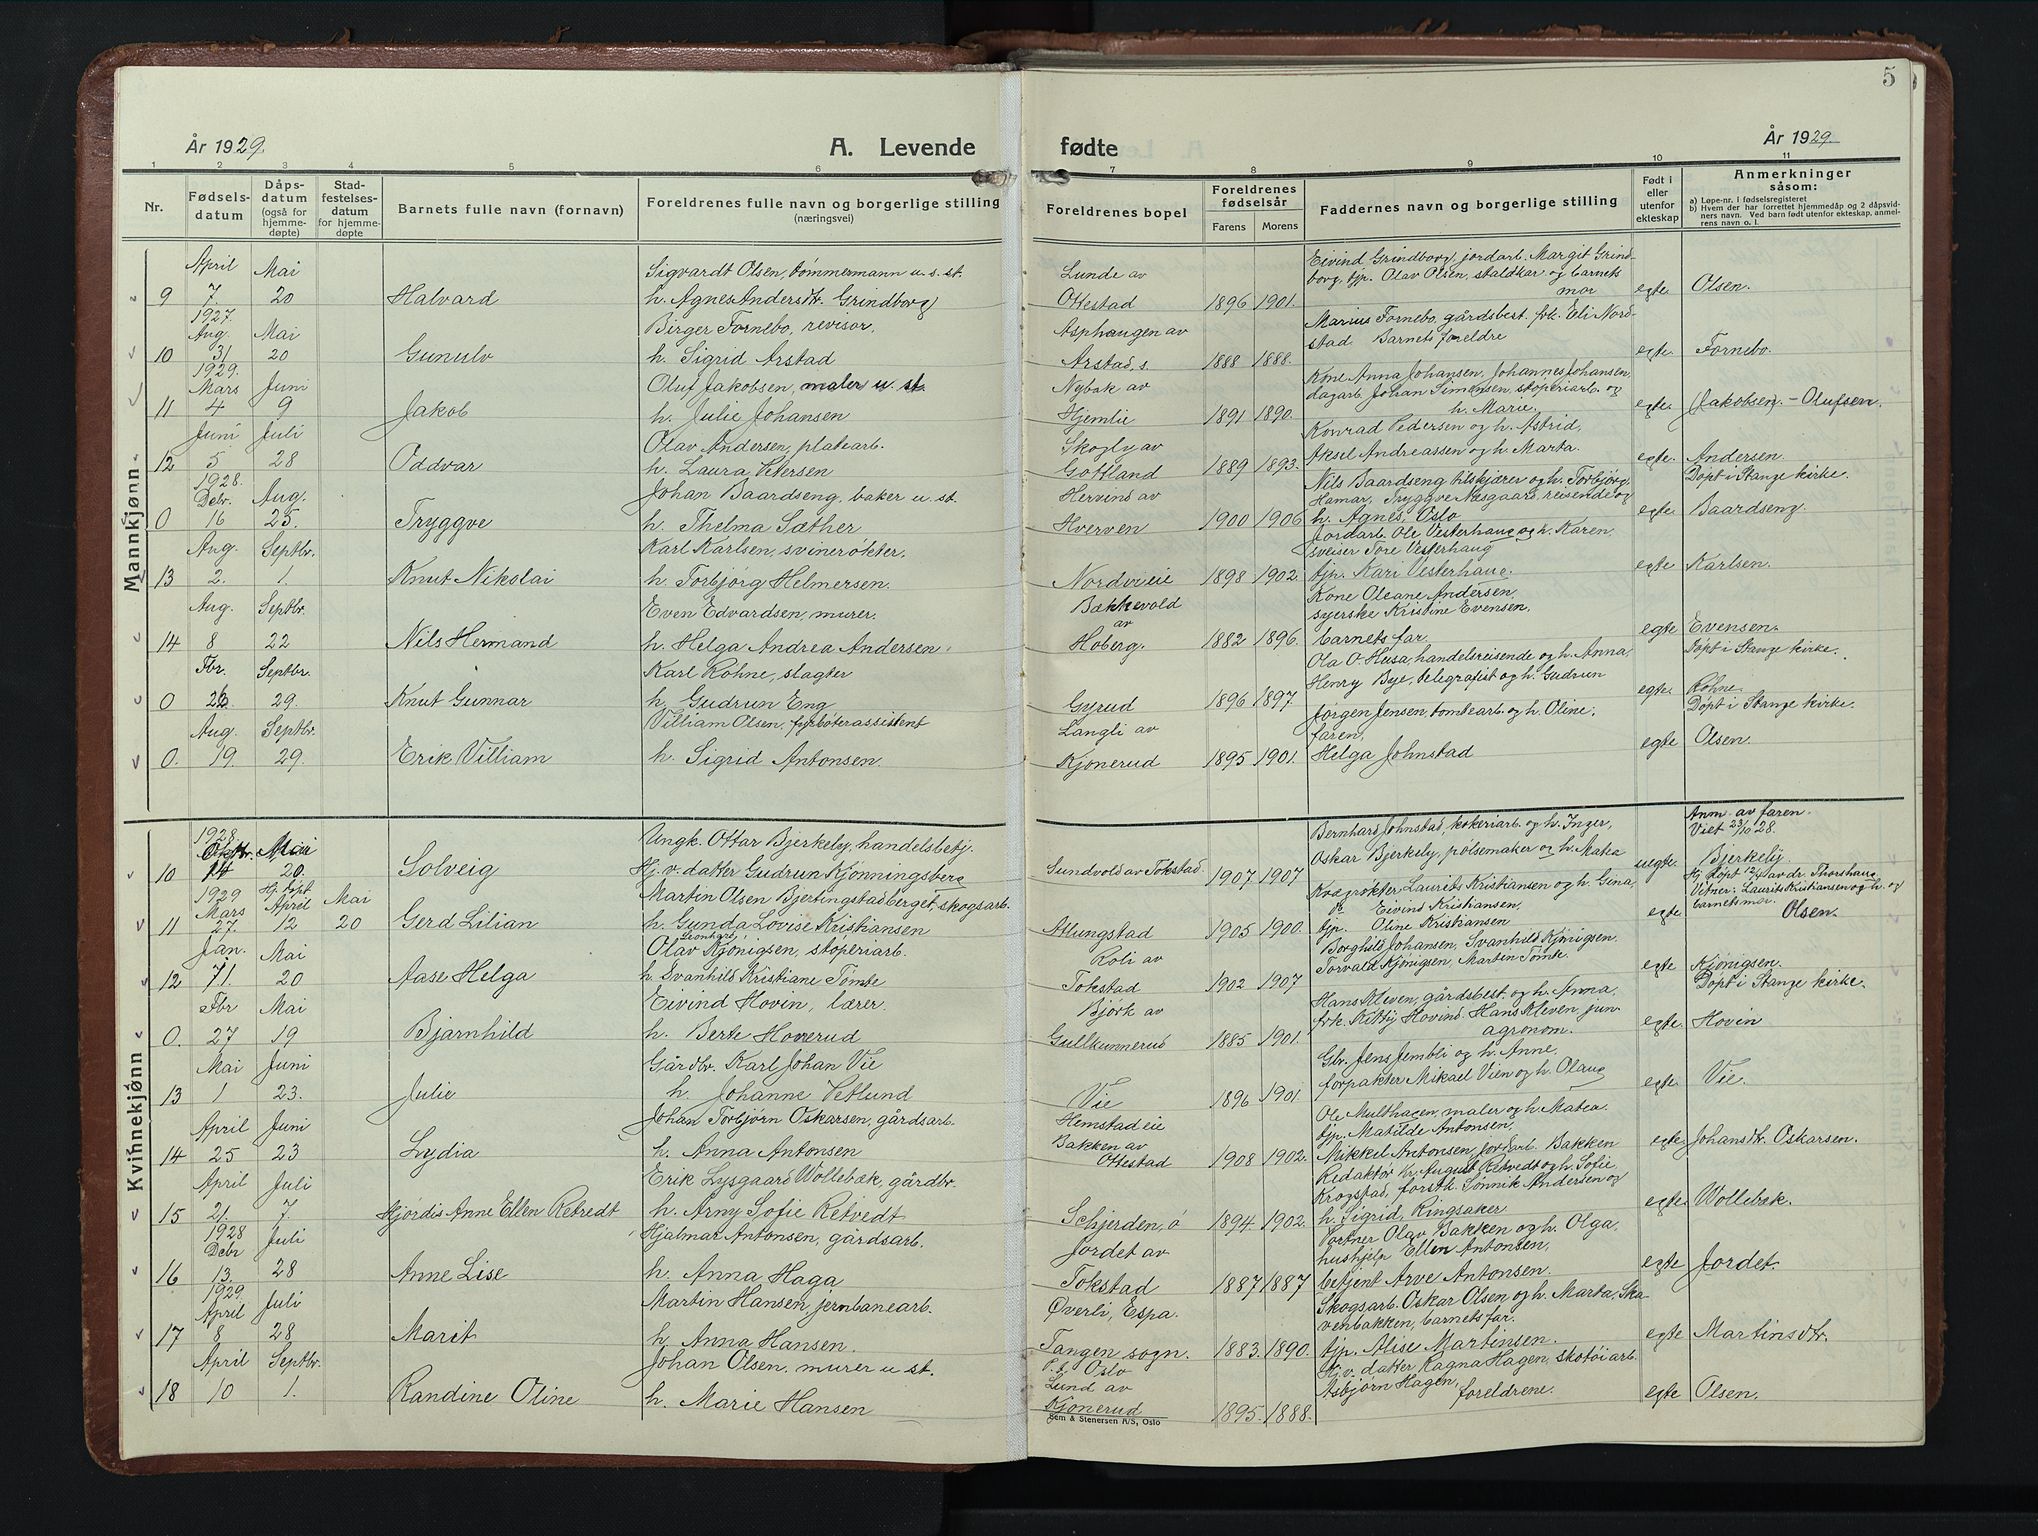 5
År 1929.
A. Levende
fødte
År 1929.
1 2 3 4 5 6 7 8 9 10 11
Nr.
Fødsels-
datum
Dåps-
datum
(også for
hjemme-
døpte)
Stad-
festelses-
datum
for hjemme-
døpte
Barnets fulle navn (fornavn)
Foreldrenes fulle navn og borgerlige stilling
(næringsvei)
Foreldrenes bopel
Foreldrenes
fødselsår
Farens
Morens
Faddernes navn og borgerlige stilling
Født i
eller
utenfor
ekteskap
Anmerkninger
såsom:
a) Løpe-nr. i fødselsregisteret
b) Hvem der har forrettet hjemmedåp og 2 dåpsvid-
ners navn. Ved barn født utenfor ekteskap, anmel-
rens navn o. l.
Mannkjønn
April Mai Sigvardt Olsen, tømmermann u. s. st. Lunde av Eivind Grindborg, jordarb. Margit Grind-
borg, tjp. Olav Olsen, staldkar og barnets
9 7 20 Halvard h. Agnes Andersdtr. Grindborg Ottestad 1896 1901. mor egte Olsen.
1927.
Aug. Mai Birger Fornebo, revisor, Asphaugen av Marius Fornebo, gårdsbest. frk. Eli Nord-
10 31 20 Gunulv h. Sigrid Arstad Arstad, s. 1888 1888. stad Barnets foreldre egte. Fornebo.
1929.
Mars Juni Oluf Jakobsen, maler u. st. Nybak av Kone Anna Johansen, Johannes Johansen,
dagarb. Johan Simensen, stoperiarb. og
11 4 9 Jakob h. Julie Johansen Hjemlie 1891 1890. h. Marie. egte. Jakobsen. - Olufsen.
Juni Juli Olav Andersen, platearb. Skogly av Konrad Pedersen og h. Astrid,
12 5 28 Oddvar h. Laura Petersen Gottland 1889 1893. Aksel Andreassen og h. Marta. egte. Andersen.
1928.
Debr. Aug. Johan Baardseng, baker u. st. Hervins av Nils Baardseng tilskjærer og h. Torbjørg, Døpt i Stange kirke.
Hamar, Tryggve Næsgaard, reisende og
0 16 25. Tryggve h. Thelma Sæther Hverven 1900 1906 h. Agnes, Oslo egte. Baardseng.
Aug. Septbr. Karl Karlsen, svinerøkter. Jordarb. Ole Vesterhaug og h. Karen.
sveiser Tore Vesterhaug
13 2. 1. Knut Nikolai h. Torbjörg Helmersen. Nordvieie 1898 1902. tjp. Kari Vesterhaug. egte Karlsen.
Aug. Septbr. Even Edvardsen, murer. Bækkevold av Kone Oleane Andersen,
syerske Kristine Evensen,
14 8 22 Nils Hermand h. Helga Andrea Andersen. Hoberg. 1882 1896. barnets far. egte Evensen.
Fbr. Septbr. Karl Rohne, slagter Ola O. Husa, handelsreisende og h. Anna, Døpt i Stange kirke.
Henry Bye, telegrafist og h. Gudrun
0 26 29. Knut Gunnar h. Gudrun Eng Gyrud 1896 1897. egte Rohne.
Aug. Septbr. Villiam Olsen, fyrbøterassistent Langli av Jørgen Jensen, tomtearb. og h. Oline, Døpt i Stange kirke.
faren,
0. 19. 29. Erik Villiam h. Sigrid Antonsen. Kjonerud 1895 1901. Helga Johnstad egte Olsen.
Kvinnekjønn
1928
Oktbr. Mai Ungk. Ottar Bjerkely, handelsbetj. Bernhard Johnstad, kokeriarb. og h. Inger, Anm. av faren.
Viet 23/10 28.
10 14 20. Solveig Hj. v. datter Gudrun Kjønningsberg Sundvold av Tokstad 1907 1907 Oskar Bjerkely, pølsemaker og h. Matea uegte. Bjerkely.
1929
Mars Hj. døpt April Mai Martin Olsen Bjertingstadberget, skogsarb. Kvægrøkter Laurits Kristiansen og h. Gina, Hj. døpt 12/4 av dr. Thorshaug
Vitner: Laurits Kristiansen og h. og
barnets mor.
11 27. 12 20 Gerd Lilian h. Gunda Lovise Kristiansen Atlungstad 1905 1900. Eivind Kristiansen,
tjp. Oline Kristiansen egte Olsen.
Jan. Mai Olav Leonhard Kjønigsen, stoperiarb. Roli av Borghild Johansen, Svanhild Kjønigsen.
12 71. 20 Aase Helga h. Svanhild Kristiane Tomte Tokstad 1902 1907 Torvald Kjønigsen, Martin Tomte. egte Kjønigsen.
Fbr Mai Eivind Hovin, lærer. Bjørk av Hans Kleven, gårdsbest. og h. Anna, Døpt i Stange kirke.
frk. Kitty Hovind, Hans Kleven jun.
0. 27 19 Bjarnhild h. Berte Hoverud Gullkunnerud 1885 1901. agronom. egte Hovin
Mai Juni Gårdbr. Karl Johan Vie Gbr. Jens Jembli og h. Anne,
13 1 23. Julie h. Johanne Vetlund Vie 1896 1901. forpakter Mikael Vien og h. Olaug egte Vie.
April Juni Johan Torbjørn Oskarsen, gårdsarb. Hemstadeie Ole Multhagen, maler og h. Matea.
Bakken av tjp. Matilde Antonsen,
14 25 23 Lydia h. Anna Antonsen Ottestad 1908 1902. Mikkel Antonsen, jordarb. Bakken egte Johansdtr. Oskarsen.
April Juli Erik Lysgaard Wollebæk, gårdbr. Redaktør Kr. August Retvedt og h. Sofie,
Krogstad, forsth. Sønnik Andersen og
15 21. 7. Hjördis Anne Ellen Retvedt h. Arny Sofie Retvedt Schjerden, ø 1894 1902. h. Sigrid, Ringsaker egte Wollebæk.
1928
Debr Juli Hjalmar Antonsen, gårdsarb. Jordet av Portner Olav Bakken og h. Olga,
hushjelp Ellen Antonsen,
16 13. 28 Anne Lise h. Anna Haga Tokstad 1887 1887 betjent Arve Antonsen. egte Jordet.
1929
April Juli Martin Hansen, jernbanearb. Øverli, Espa. Skogsarb. Oskar Olsen og h. Marta, Ska-
venbakken, barnets far.
17 8 28 Marit h. Anna Hansen. Tangen sogn. 1883. 1890. tjp. Alise Martinsen. egte Martinsdtr.
April Septbr. Johan Olsen. murer u. st. p. t. Oslo Hj. v. datter Ragna Hagen, skotøiarb.
Lund av Asbjørn Hagen,
18 10 1. Randine Oline h. Marie Hansen Kjonerud 1895. 1888. foreldrene. egte Olsen.
Sem & Stenersen A/S, Oslo